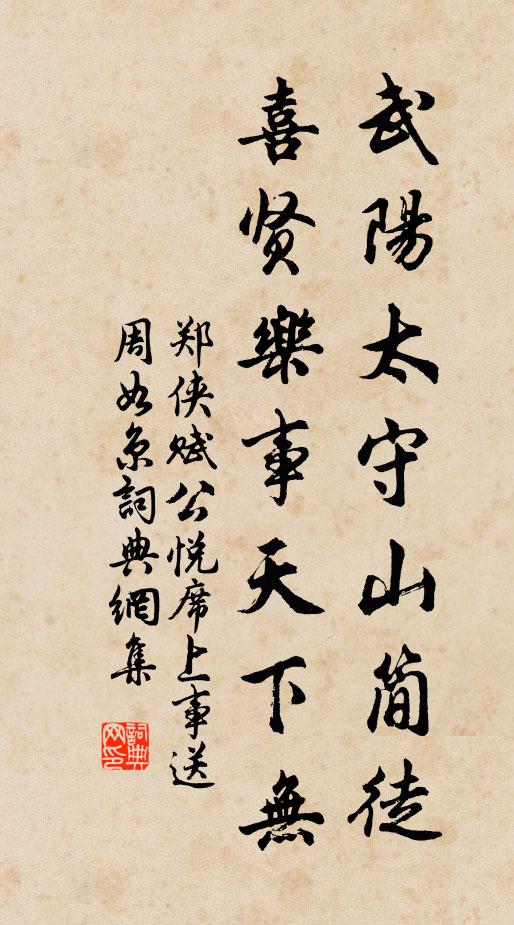 武陽太守山简徒
喜贤樂事天下無
郑侠赋公悦席上事送
周如京詞典網集
詞典网印